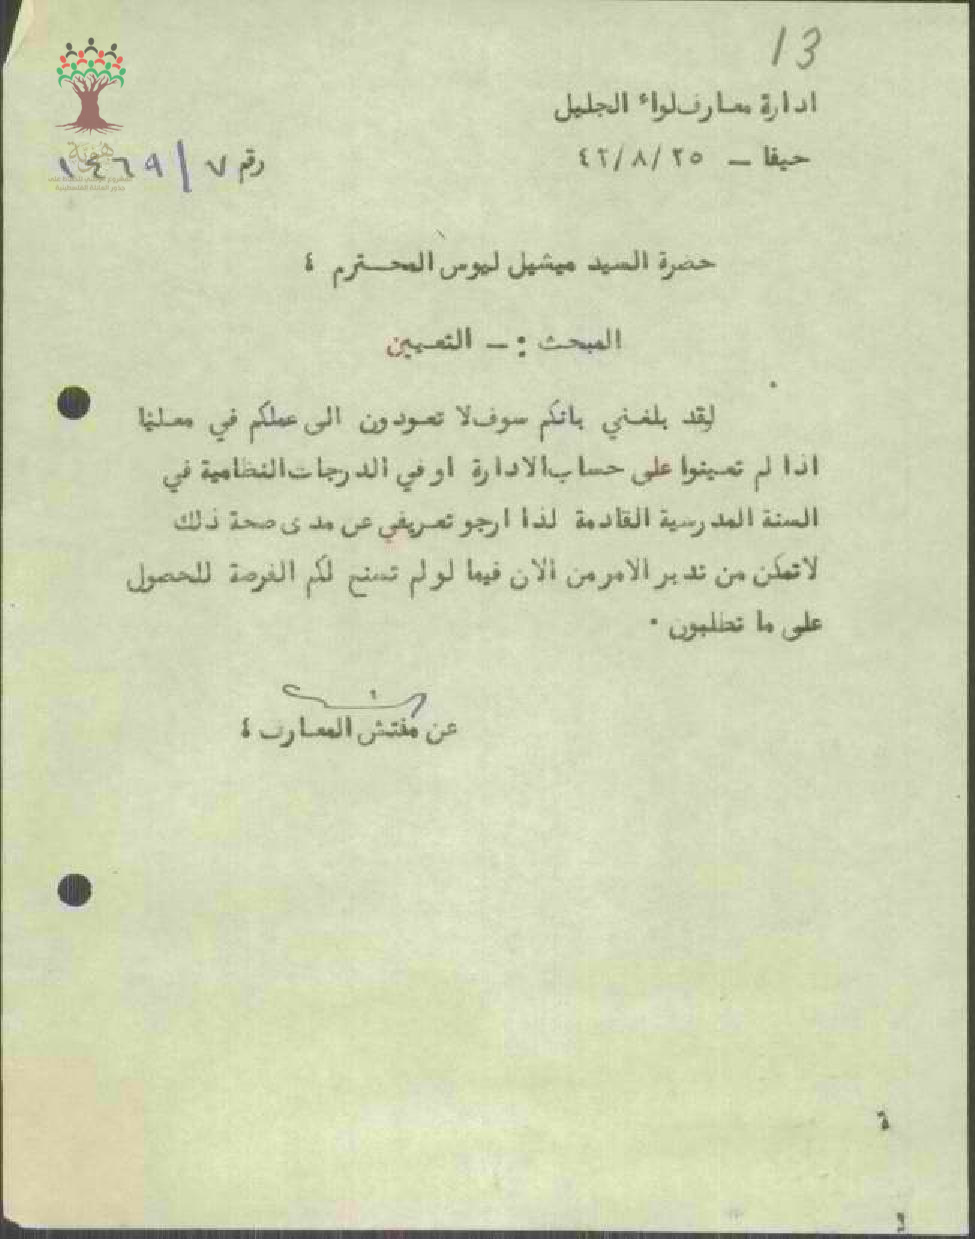 13
ادارة معارف لواء الجليل
حيفا – ٢٥/٨/٤٢
رقم ٧/١٤٦٩
هوية
حضرة السيد ميشيل ليوس المحترم ،
المبحث :– التعيين
لقد بلغني بانكم سوف لا تعودون الى عملكم في معليا
اذا لم تعينوا على حساب الادارة او في الدرجات النظامية في
السنة المدرسية القادمة لذا ارجو تعريفي عن مدى صحة ذلك
لاتمكن من تدبر الامر من الان فيما لو لم تسنح لكم الفرصة للحصول
على ما تطلبون ٠
عن مفتش المعارف ،